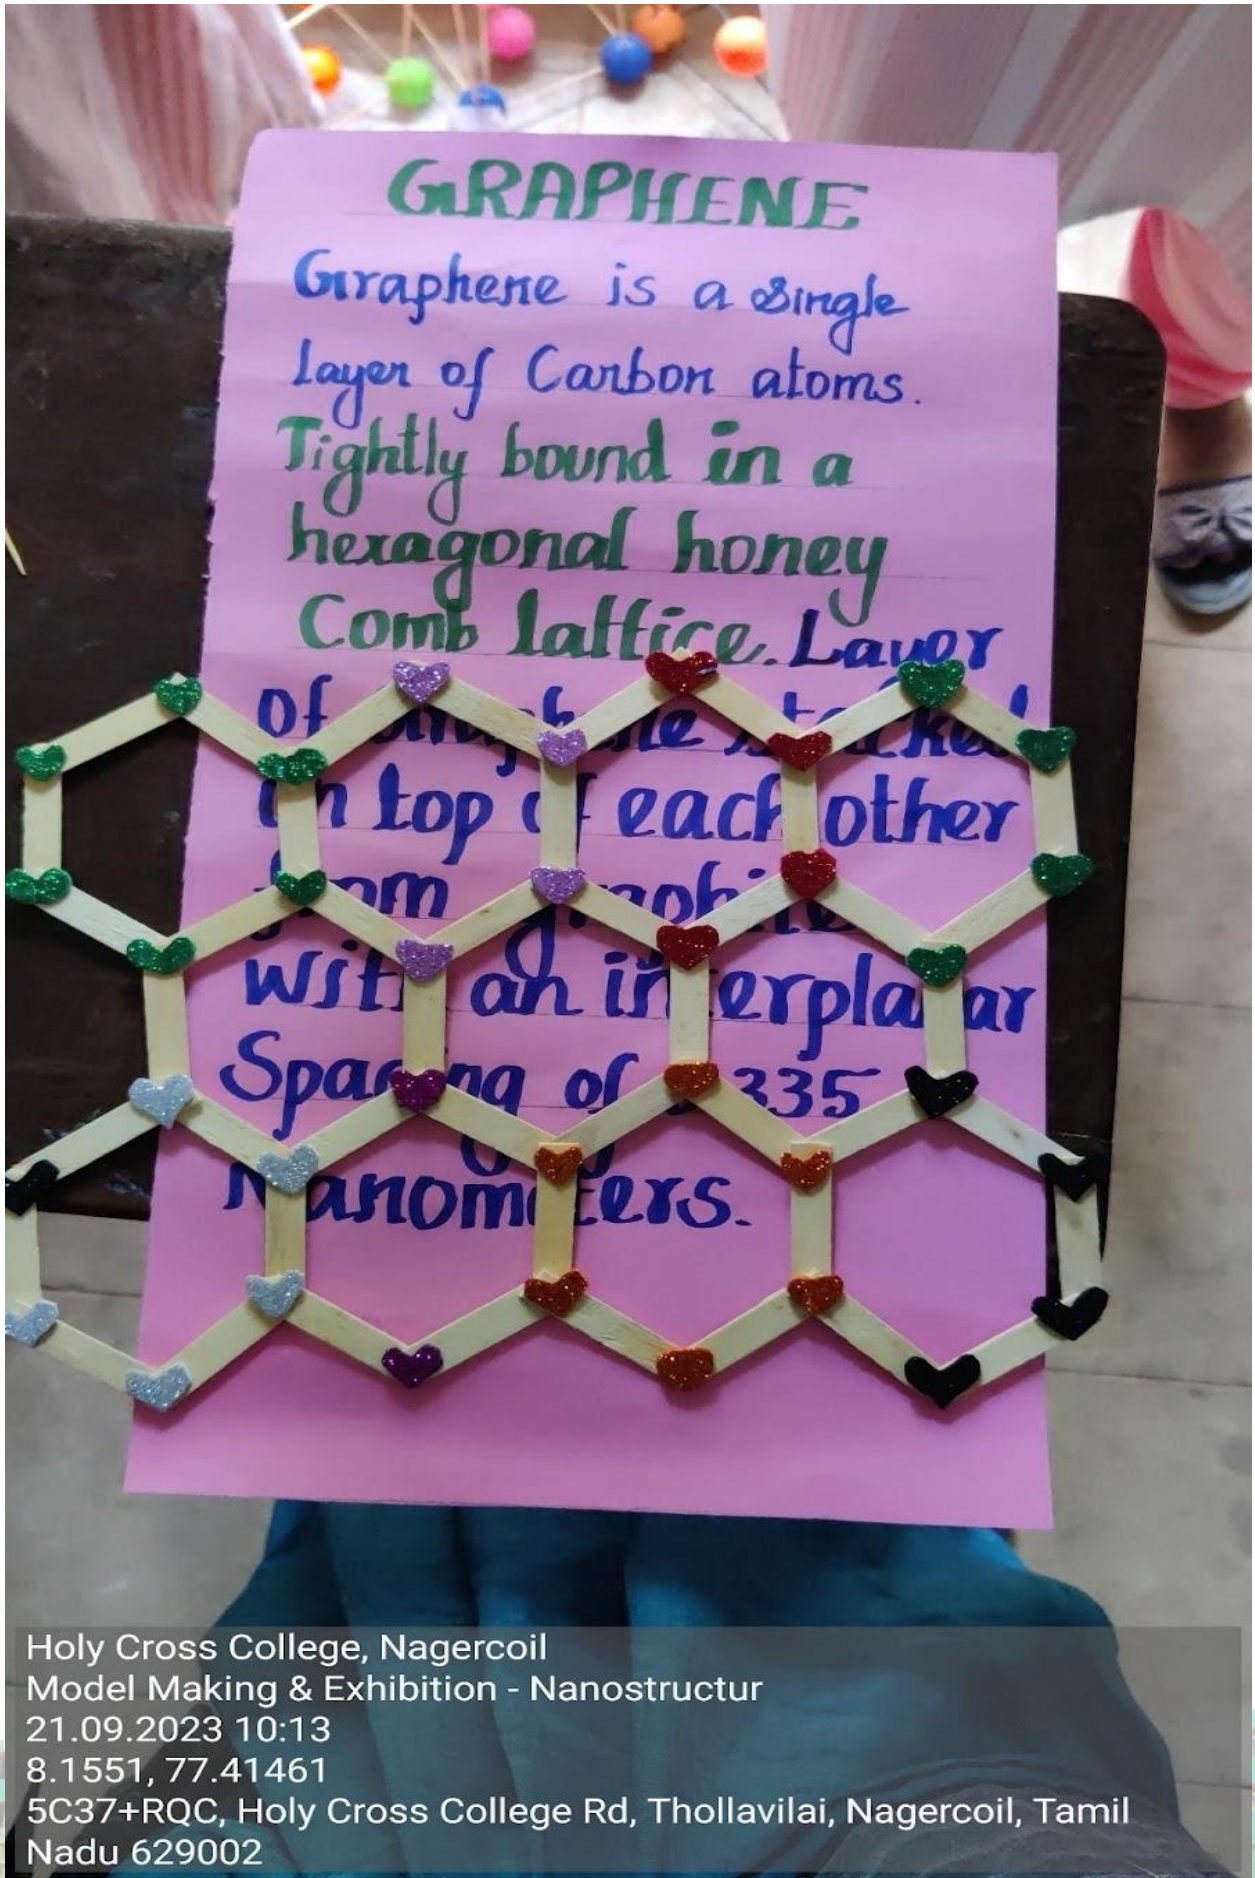 GRAPHENE
Graphene is a single
layer of Carbon atoms.
Tightly bound in a
hexagonal honey
Comb lattice. Layer
Of graphene stacked
on top of each other
from graphite
with an interplanar
Spacing of 335
Nanometers.
Holy Cross College, Nagercoil
Model Making & Exhibition - Nanostructur
21.09.2023 10:13
8.1551, 77.41461
5C37+RQC, Holy Cross College Rd, Thollavilai, Nagercoil, Tamil
Nadu 629002